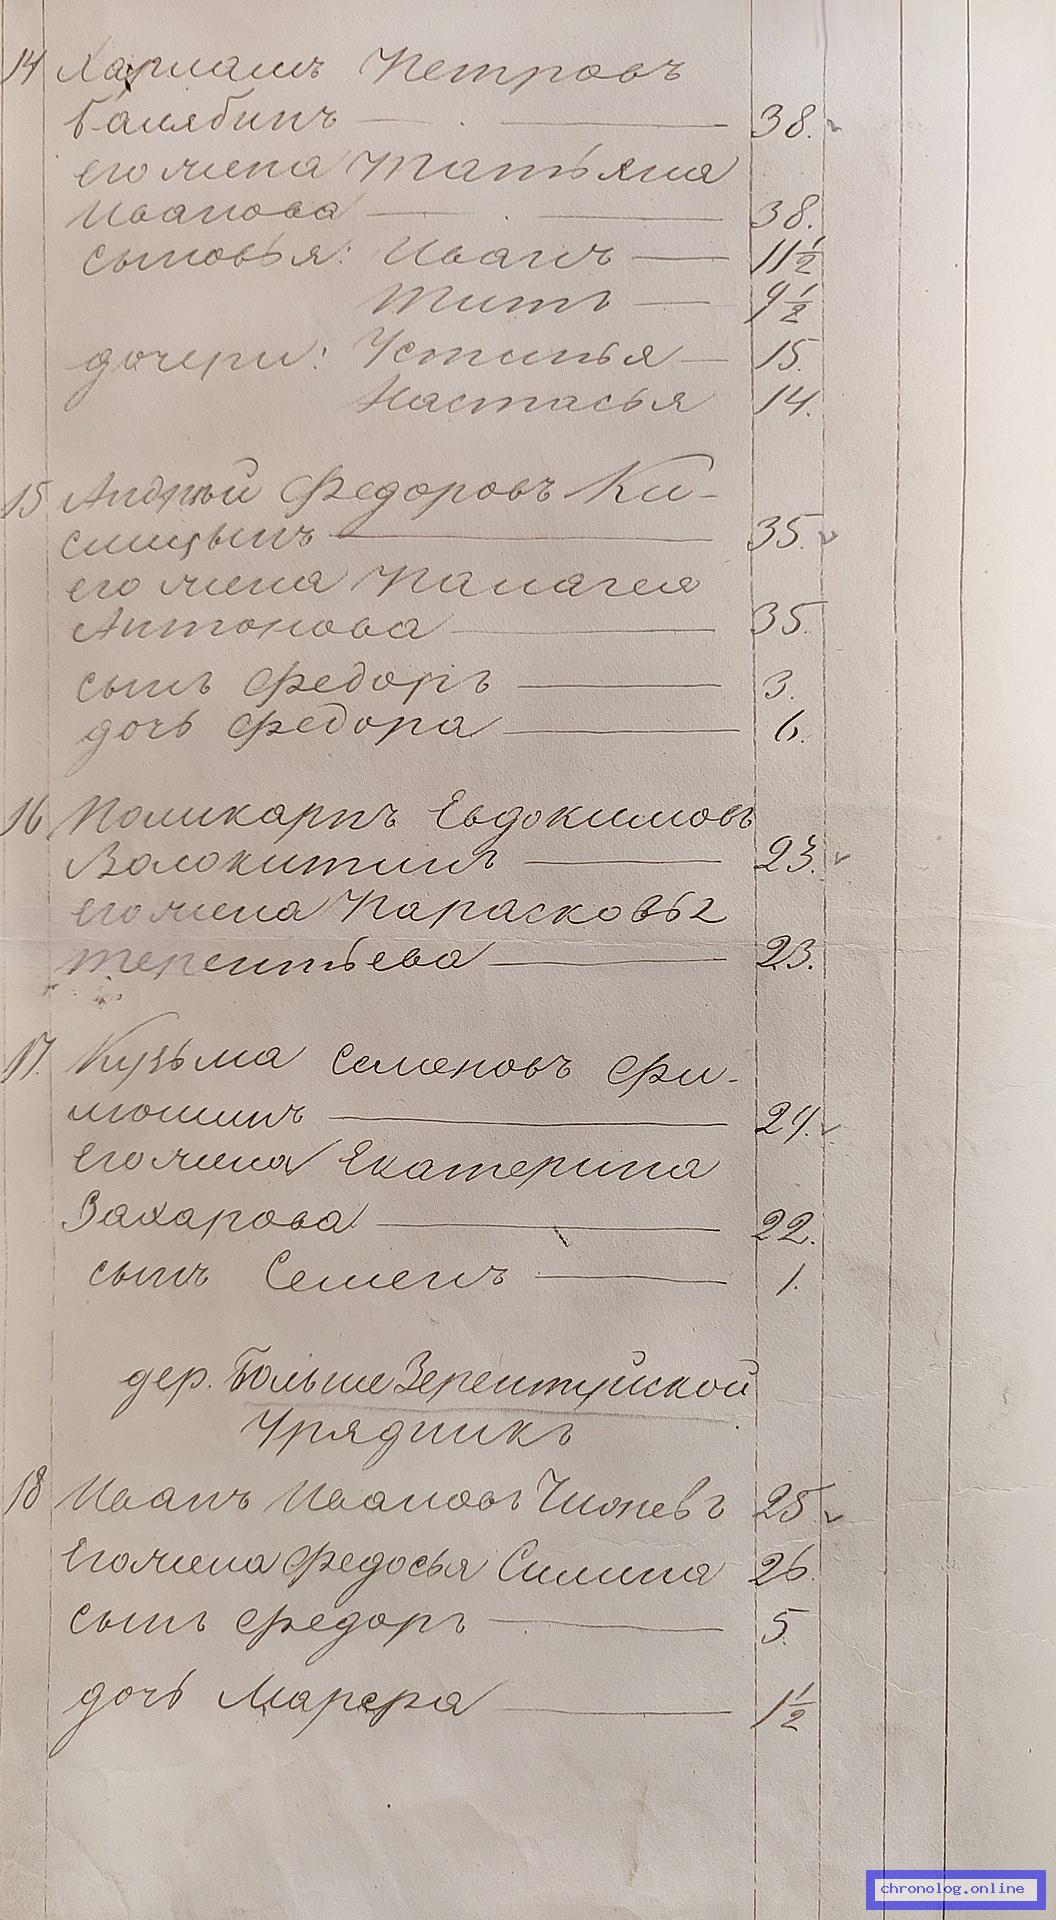 14 Харлампъ Петровъ
Балябинъ — 38.
его жена Татьяна
Иванова — 38.
сыновья: Иванъ — 11 1/2
Титъ — 9 1/2
дочери: Устинья — 15.
Настасья 14.
15 Андрей Федоровъ Ки-
слицынъ — 35.
его жена Палагея
Антонова — 35.
сынъ Федоръ — 3.
дочь Федора — 6.
16 Поликарпъ Евдокимовъ
Волокитинъ — 23.
его жена Парасковья
Терентьева — 23.
17. Кузьма Семеновъ Фи-
люшинъ — 24.
его жена Екатерина
Захарова — 22.
сынъ Семенъ — 1.
дер. Больше Зерентуйской
Урядникъ
18 Иванъ Ивановъ 25.
его жена Федосья Силина 26.
сынъ Федоръ — 5.
дочь Марфа — 1 1/2
chronolog.online